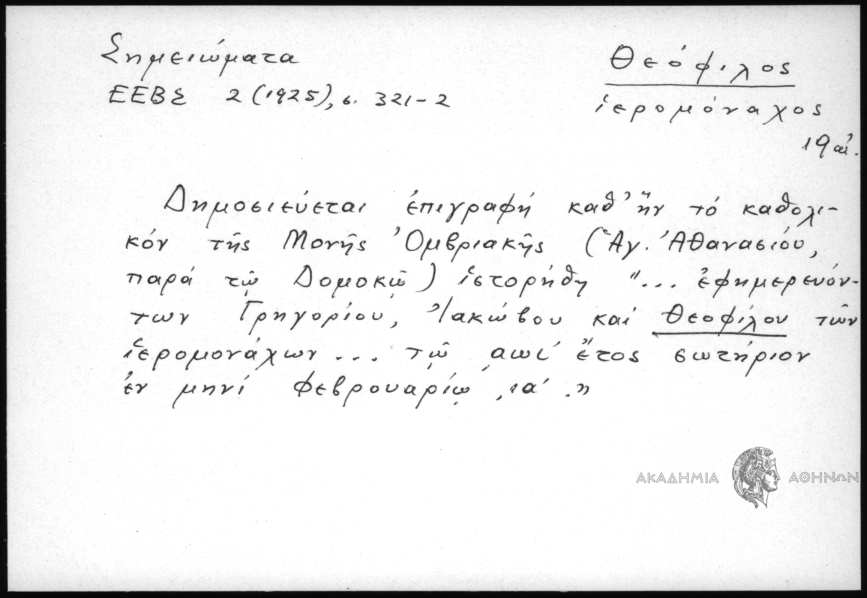 Σημειώματα
ΕΕΒΣ 2 (1925), σ. 321-2
Θεόφιλος
ἱερομόναχος
19 αἰ.
Δημοσιεύεται ἐπιγραφή καθ' ἥν τό καθολι-
κόν τῆς Μονῆς Ὀμβριακῆς (Ἁγ. Ἀθανασίου,
παρά τῷ Δομοκῷ) ἱστορήθη "... ἐφημερευόν-
των Γρηγορίου, Ἰακώβου καί Θεοφίλου τῶν
ἱερομονάχων ... τῷ ͵αωί ἔτος σωτήριον
ἐν μηνί Φεβρουαρίῳ ια΄."
ΑΚΑΔΗΜΙΑ ΑΘΗΝΩΝ